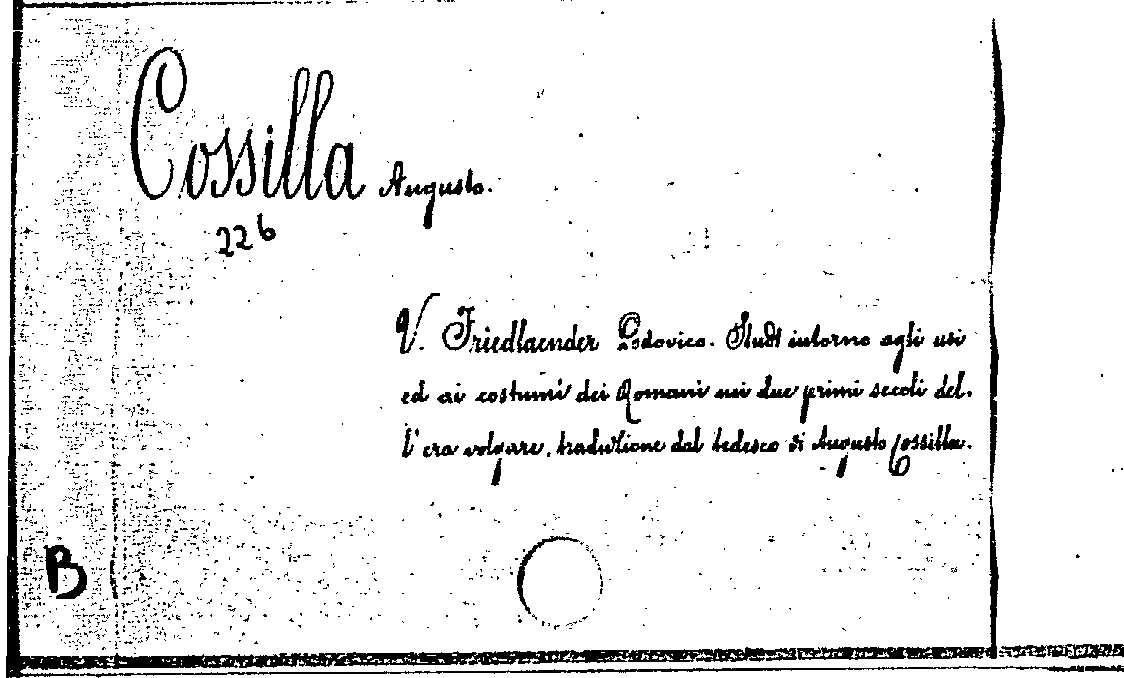 Cossilla Augusto.
226
V. Friedlaender Lodovico. Studi intorno agli usi
ed ai costumi dei Romani nei due primi secoli del-
l'era volgare, traduzione dal tedesco di Augusto Cossilla.
B